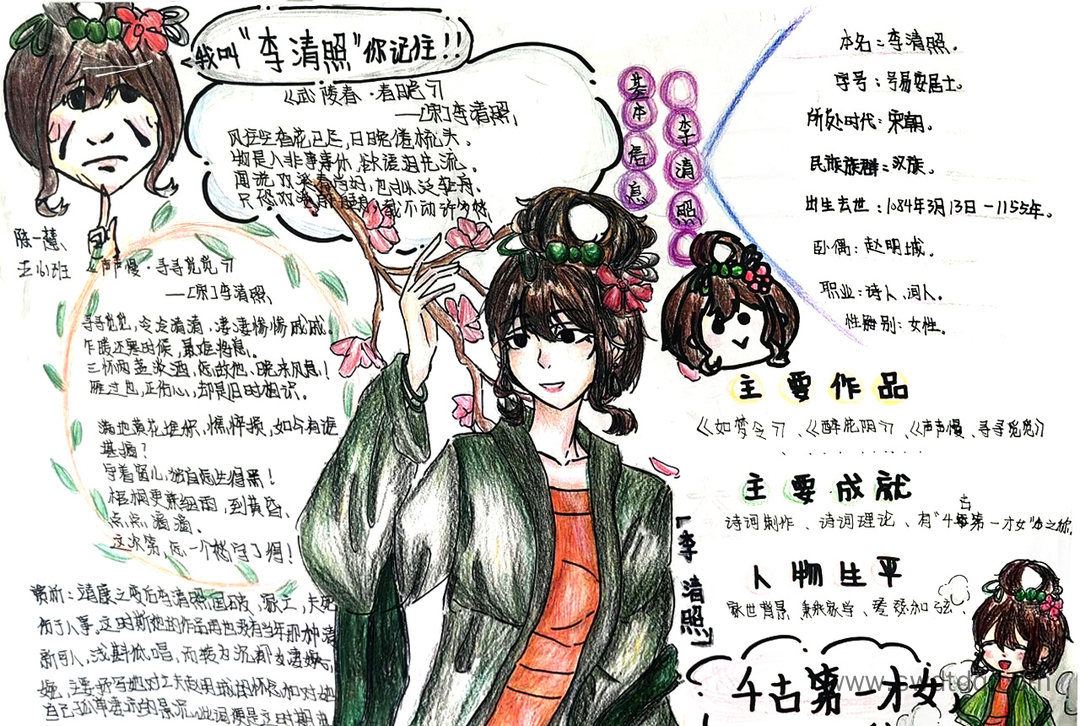 我叫"李清照"你记住!!
《武陵春·春晚》
——[宋]李清照
风住尘香花已尽，日晚倦梳头。
物是人非事事休，欲语泪先流。
闻说双溪春尚好，也拟泛轻舟。
只恐双溪舴艋舟，载不动许多愁。
陈一慧
五小班
《声声慢·寻寻觅觅》
——[宋]李清照
寻寻觅觅，冷冷清清，凄凄惨惨戚戚。
乍暖还寒时候，最难将息。
三杯两盏淡酒，怎敌他、晚来风急！
雁过也，正伤心，却是旧时相识。
满地黄花堆积，憔悴损，如今有谁
堪摘？
守着窗儿，独自怎生得黑！
梧桐更兼细雨，到黄昏、
点点滴滴。
这次第，怎一个愁字了得！
赏析：靖康之变后李清照国破，家亡，夫死
伤于人事，这时期她的作品再也没有当年那种清
新可人，浅斟低唱，而转为沉郁
主要抒写她对亡夫赵明诚的怀念和对她
自己孤单
基本信息
李清照
本名：李清照。
字号：号易安居士。
所处时代：宋朝。
民族族群：汉族。
出生去世：1084年3月13日－1155年。
卧偶：赵明城。
职业：诗人，词人。
性别：女性。
主要作品
《如梦令》、《醉花阴》、《声声慢、寻寻觅觅》
主要成就
诗词制作、诗词理论、有"千古第一才女"的之称。
人物生平
家世背景、
「李清照」
千古第一才女